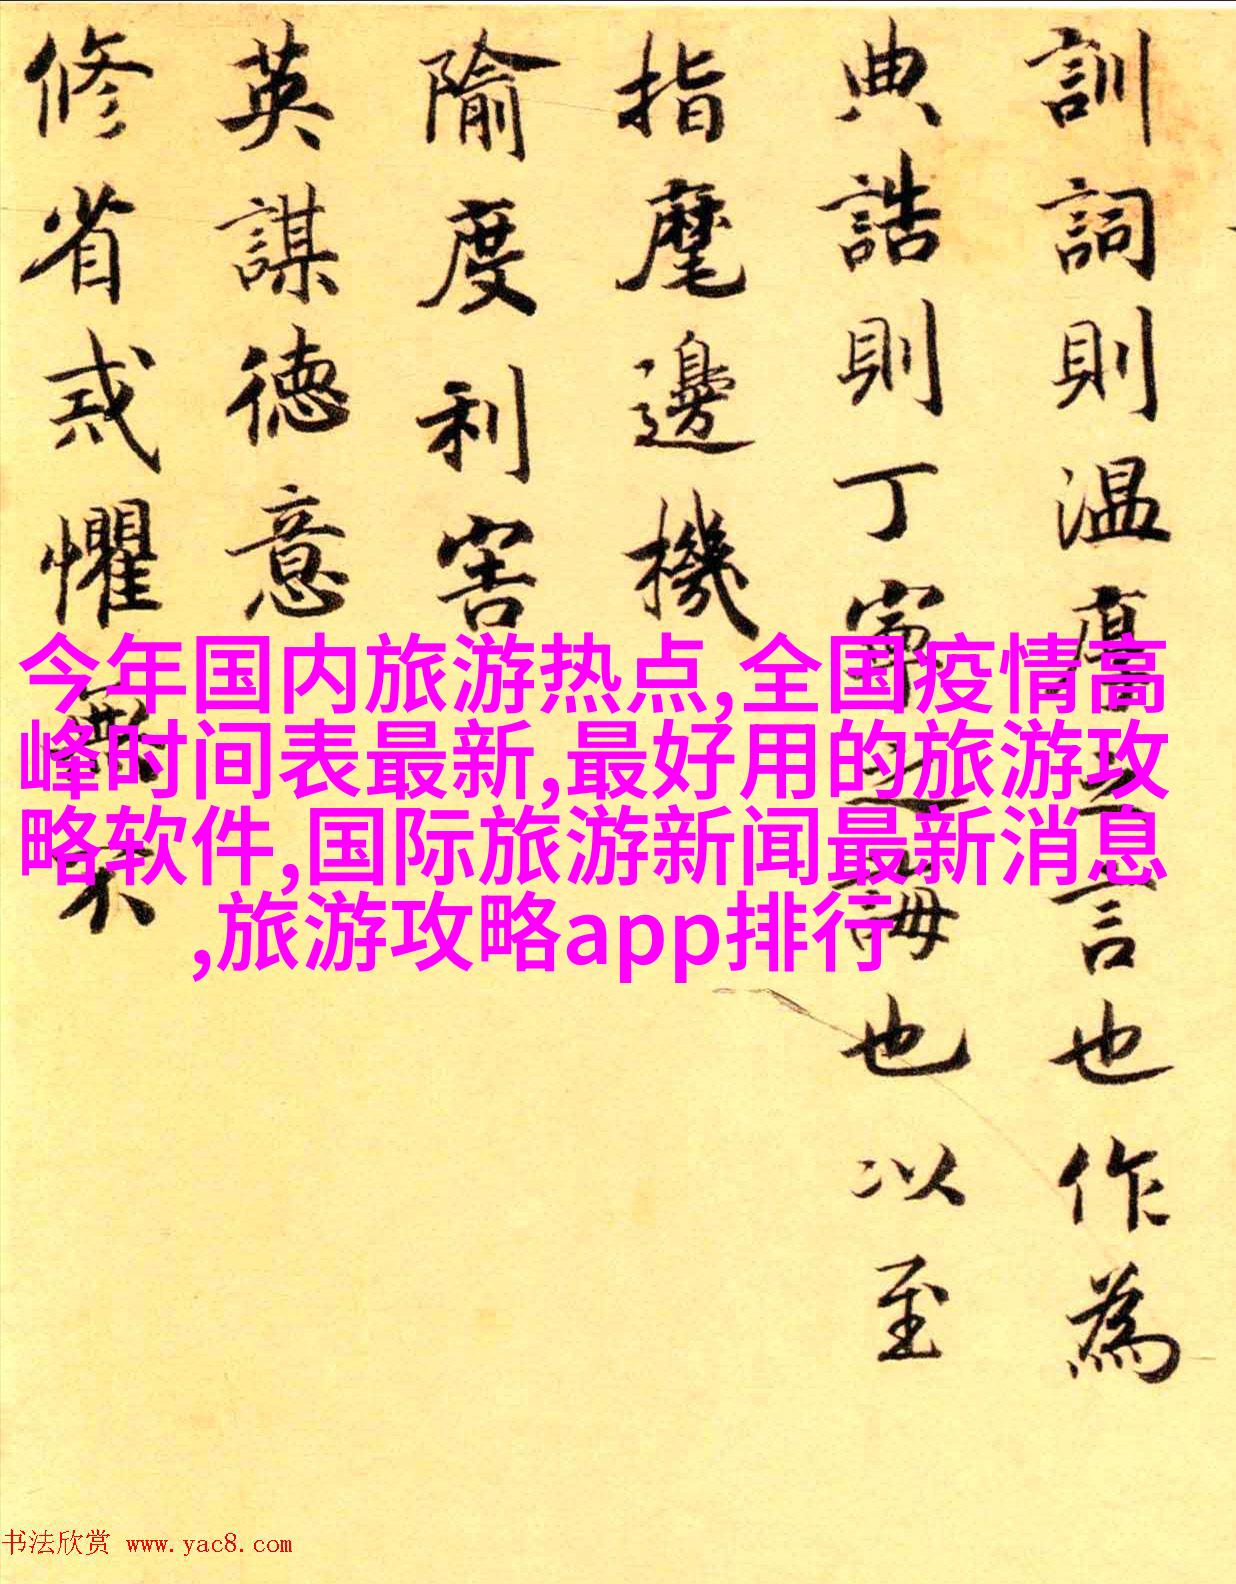 訓詞則温厚之言也作為
典誥則丁寧之誨也以至
指麾邊機
隃度利害
英謀徳意
修省戒懼無不
今年国内旅游热点,全国疫情高
峰时间表最新,最好用的旅游攻
略软件,国际旅游新闻最新消息
,旅游攻略app排行
书法欣赏 www.yac8.com